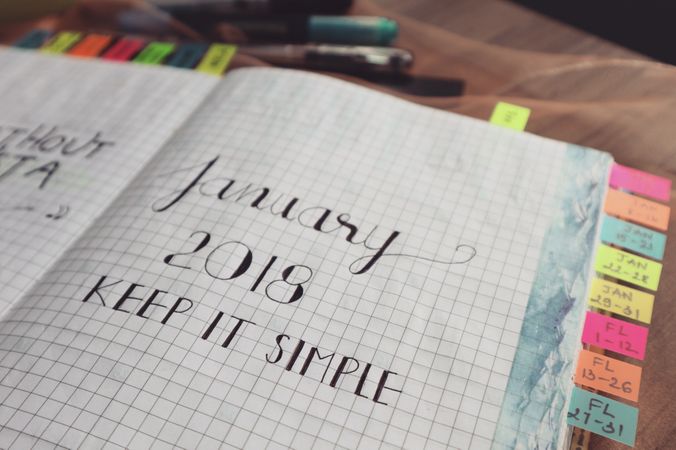 WITHOUT
January
2018
KEEP IT SIMPLE
JAN
15-21
JAN
22-28
JAN
29-31
FL
1-12
FL
13-26
FL
27-31